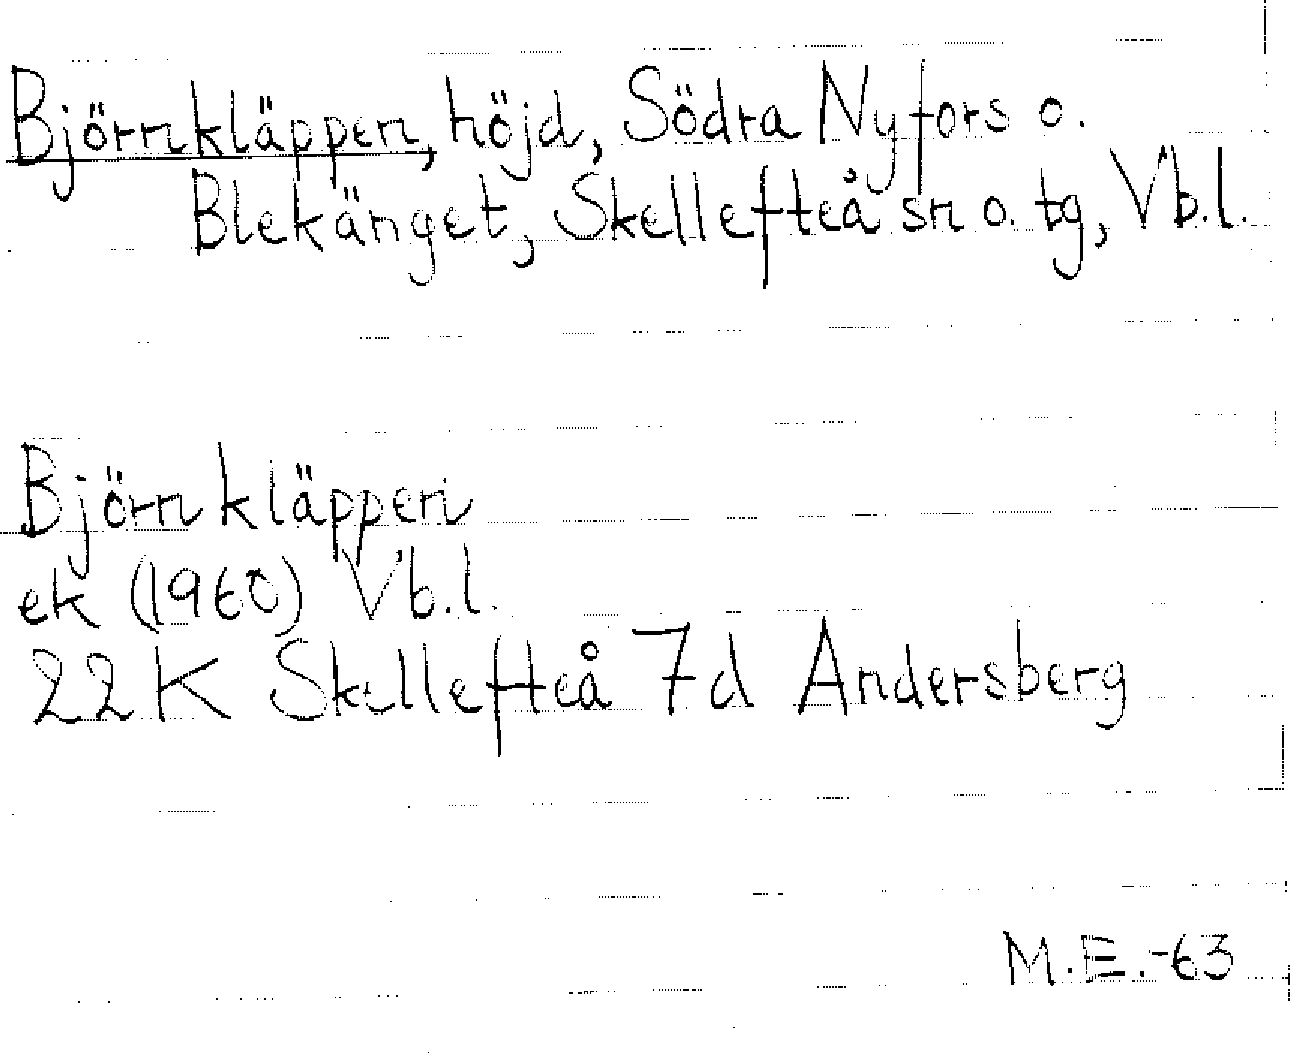 Björnkläppen, höjd, Södra Nyfors o.
Blekänget, Skellefteå sn o. tg, Vb.l.
Björnkläppen
ek (1960) Vb.l.
22K Skellefteå 7d Andersberg
M.E.-63